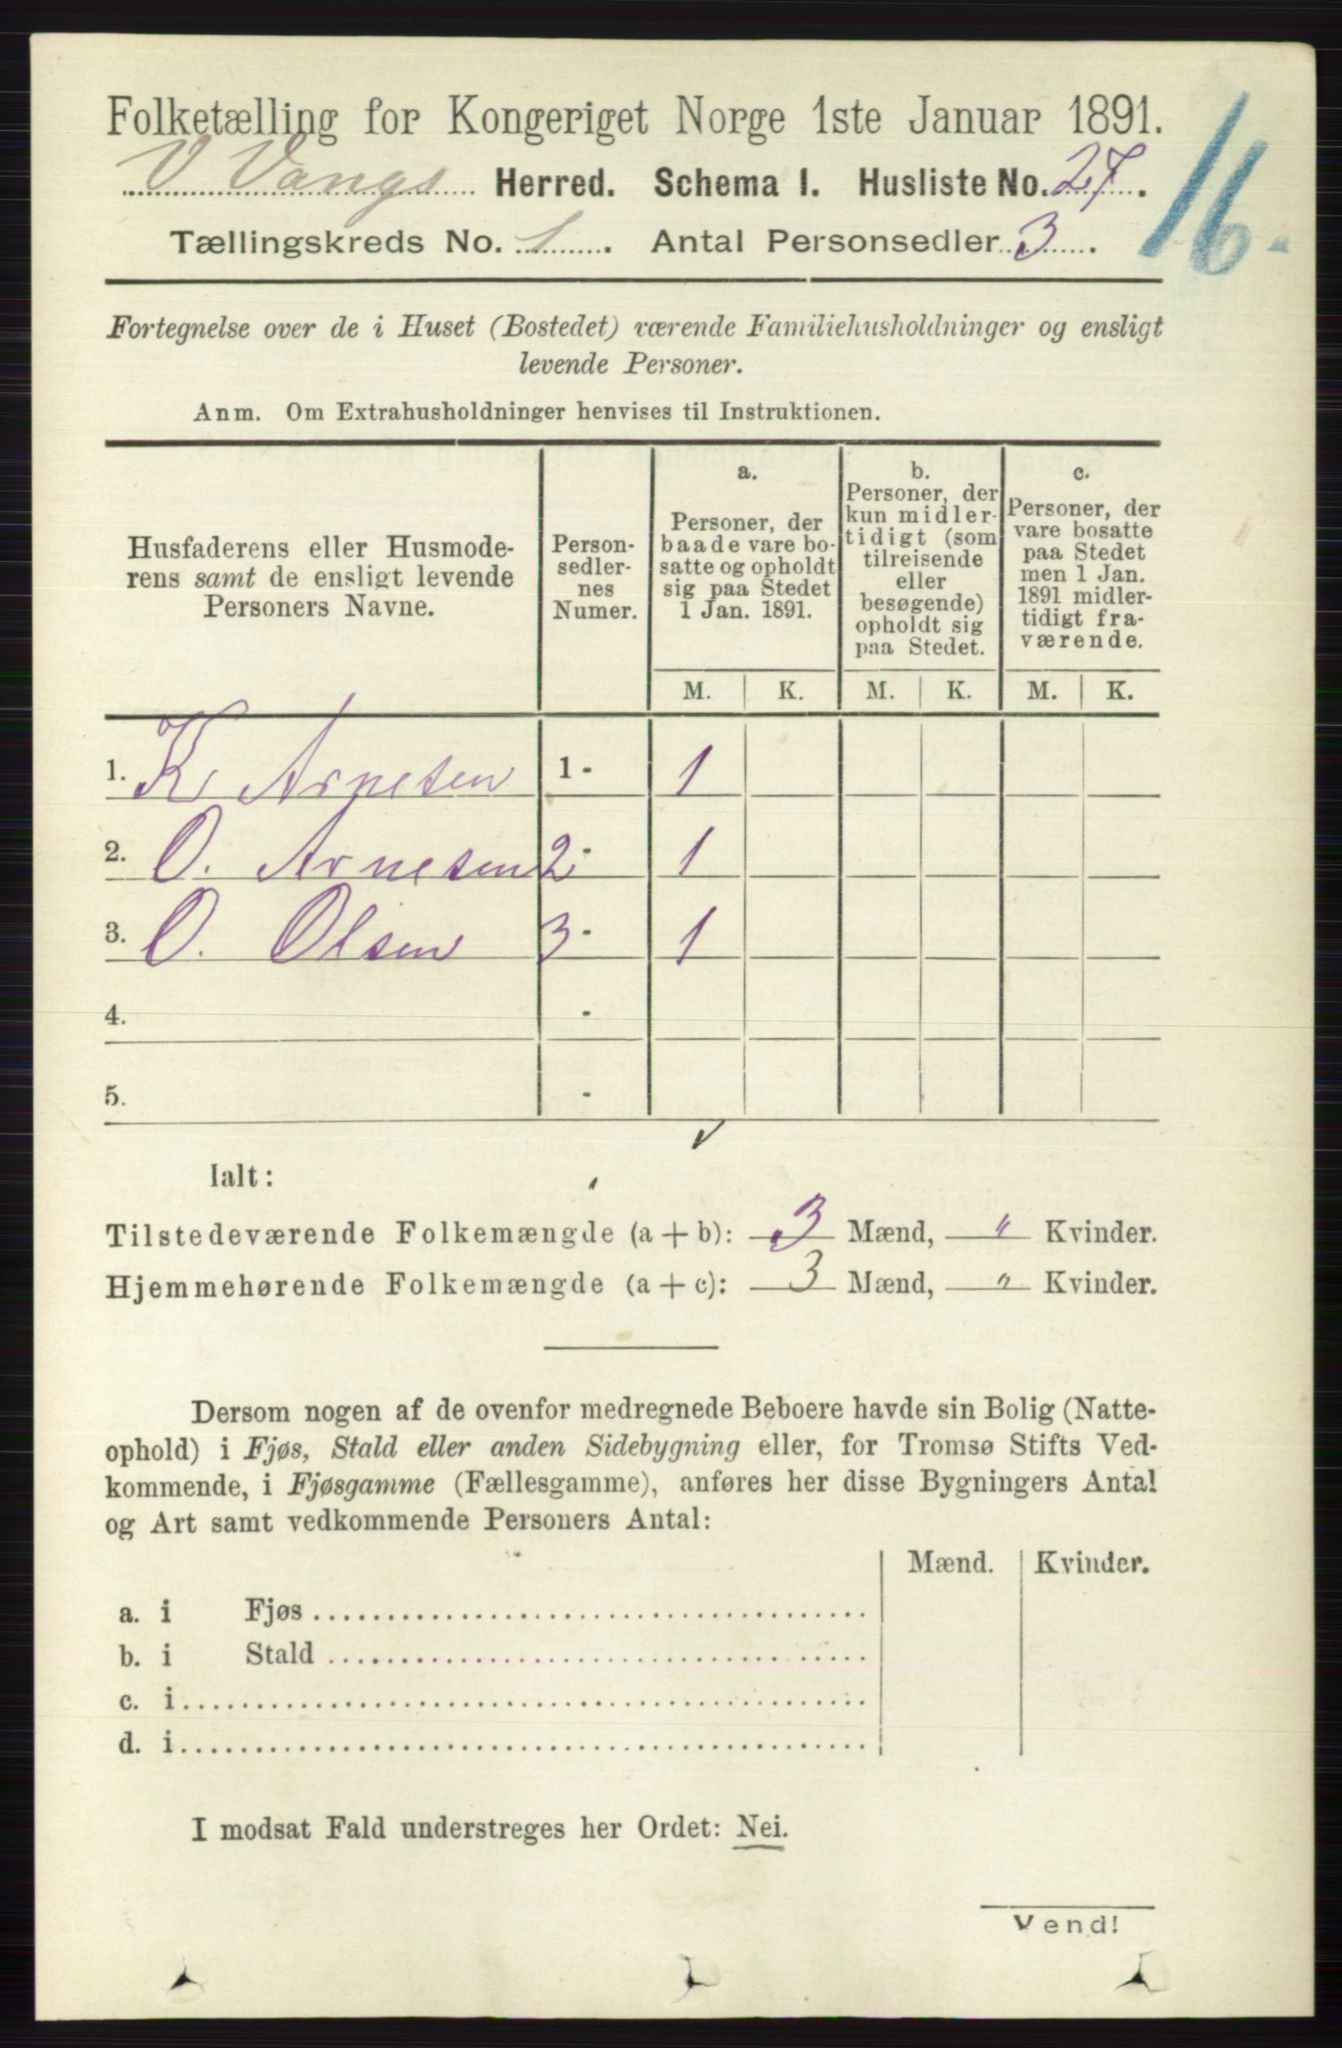 Folketælling for Kongeriget Norge 1ste Januar 1891.
V Vangs Herred. Schema I. Husliste No. 27.
16.
Tællingskreds No. 1. Antal Personsedler 3.
Fortegnelse over de i Huset (Bostedet) værende Familiehusholdninger og ensligt
levende Personer.
Anm. Om Extrahusholdninger henvises til Instruktionen.
Husfaderens eller Husmode-
rens samt de ensligt levende
Personers Navne.
Person-
sedler-
nes
Numer.
a.
Personer, der
baade vare bo-
satte og opholdt
sig paa Stedet
1 Jan. 1891.
b.
Personer, der
kun midler-
tidigt (som
tilreisende
eller
besøgende)
opholdt sig
paa Stedet.
c.
Personer, der
vare bosatte
paa Stedet
men 1 Jan.
1891 midler-
tidigt fra-
værende.
M. K. M. K. M. K.
1. K Arnesen 1 - 1
2. O. Arnesen 2 - 1
3. O. Olsen 3 - 1
4. -
5. -
Ialt:
Tilstedeværende Folkemængde (a + b): 3 Mænd, " Kvinder.
Hjemmehørende Folkemængde (a + c): 3 Mænd, " Kvinder.
Dersom nogen af de ovenfor medregnede Beboere havde sin Bolig (Natte-
ophold) i Fjøs, Stald eller anden Sidebygning eller, for Tromsø Stifts Ved-
kommende, i Fjøsgamme (Fællesgamme), anføres her disse Bygningers Antal
og Art samt vedkommende Personers Antal:
Mænd. Kvinder.
a. i Fjøs
b. i Stald
c. i
d. i
I modsat Fald understreges her Ordet: Nei.
Vend!